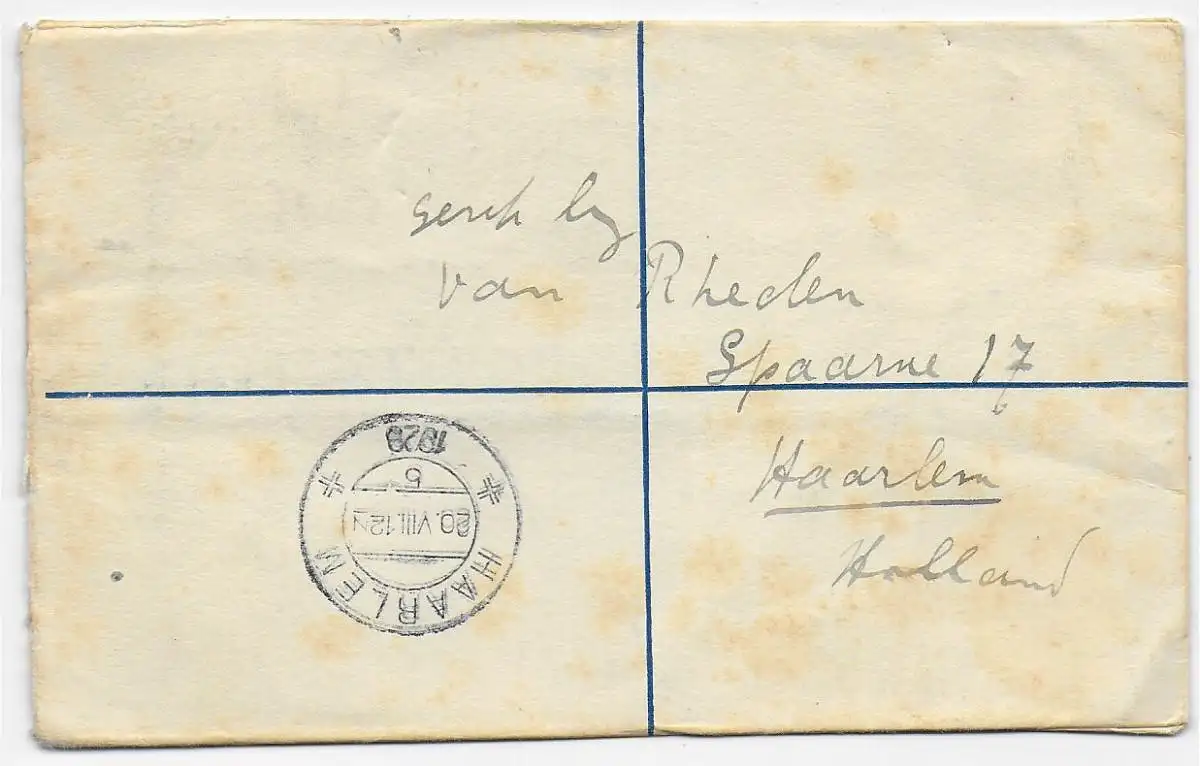 van Rheden
Spaarne 17
Haarlem
Holland
HAARLEM
20.VIII.12N
6
1929